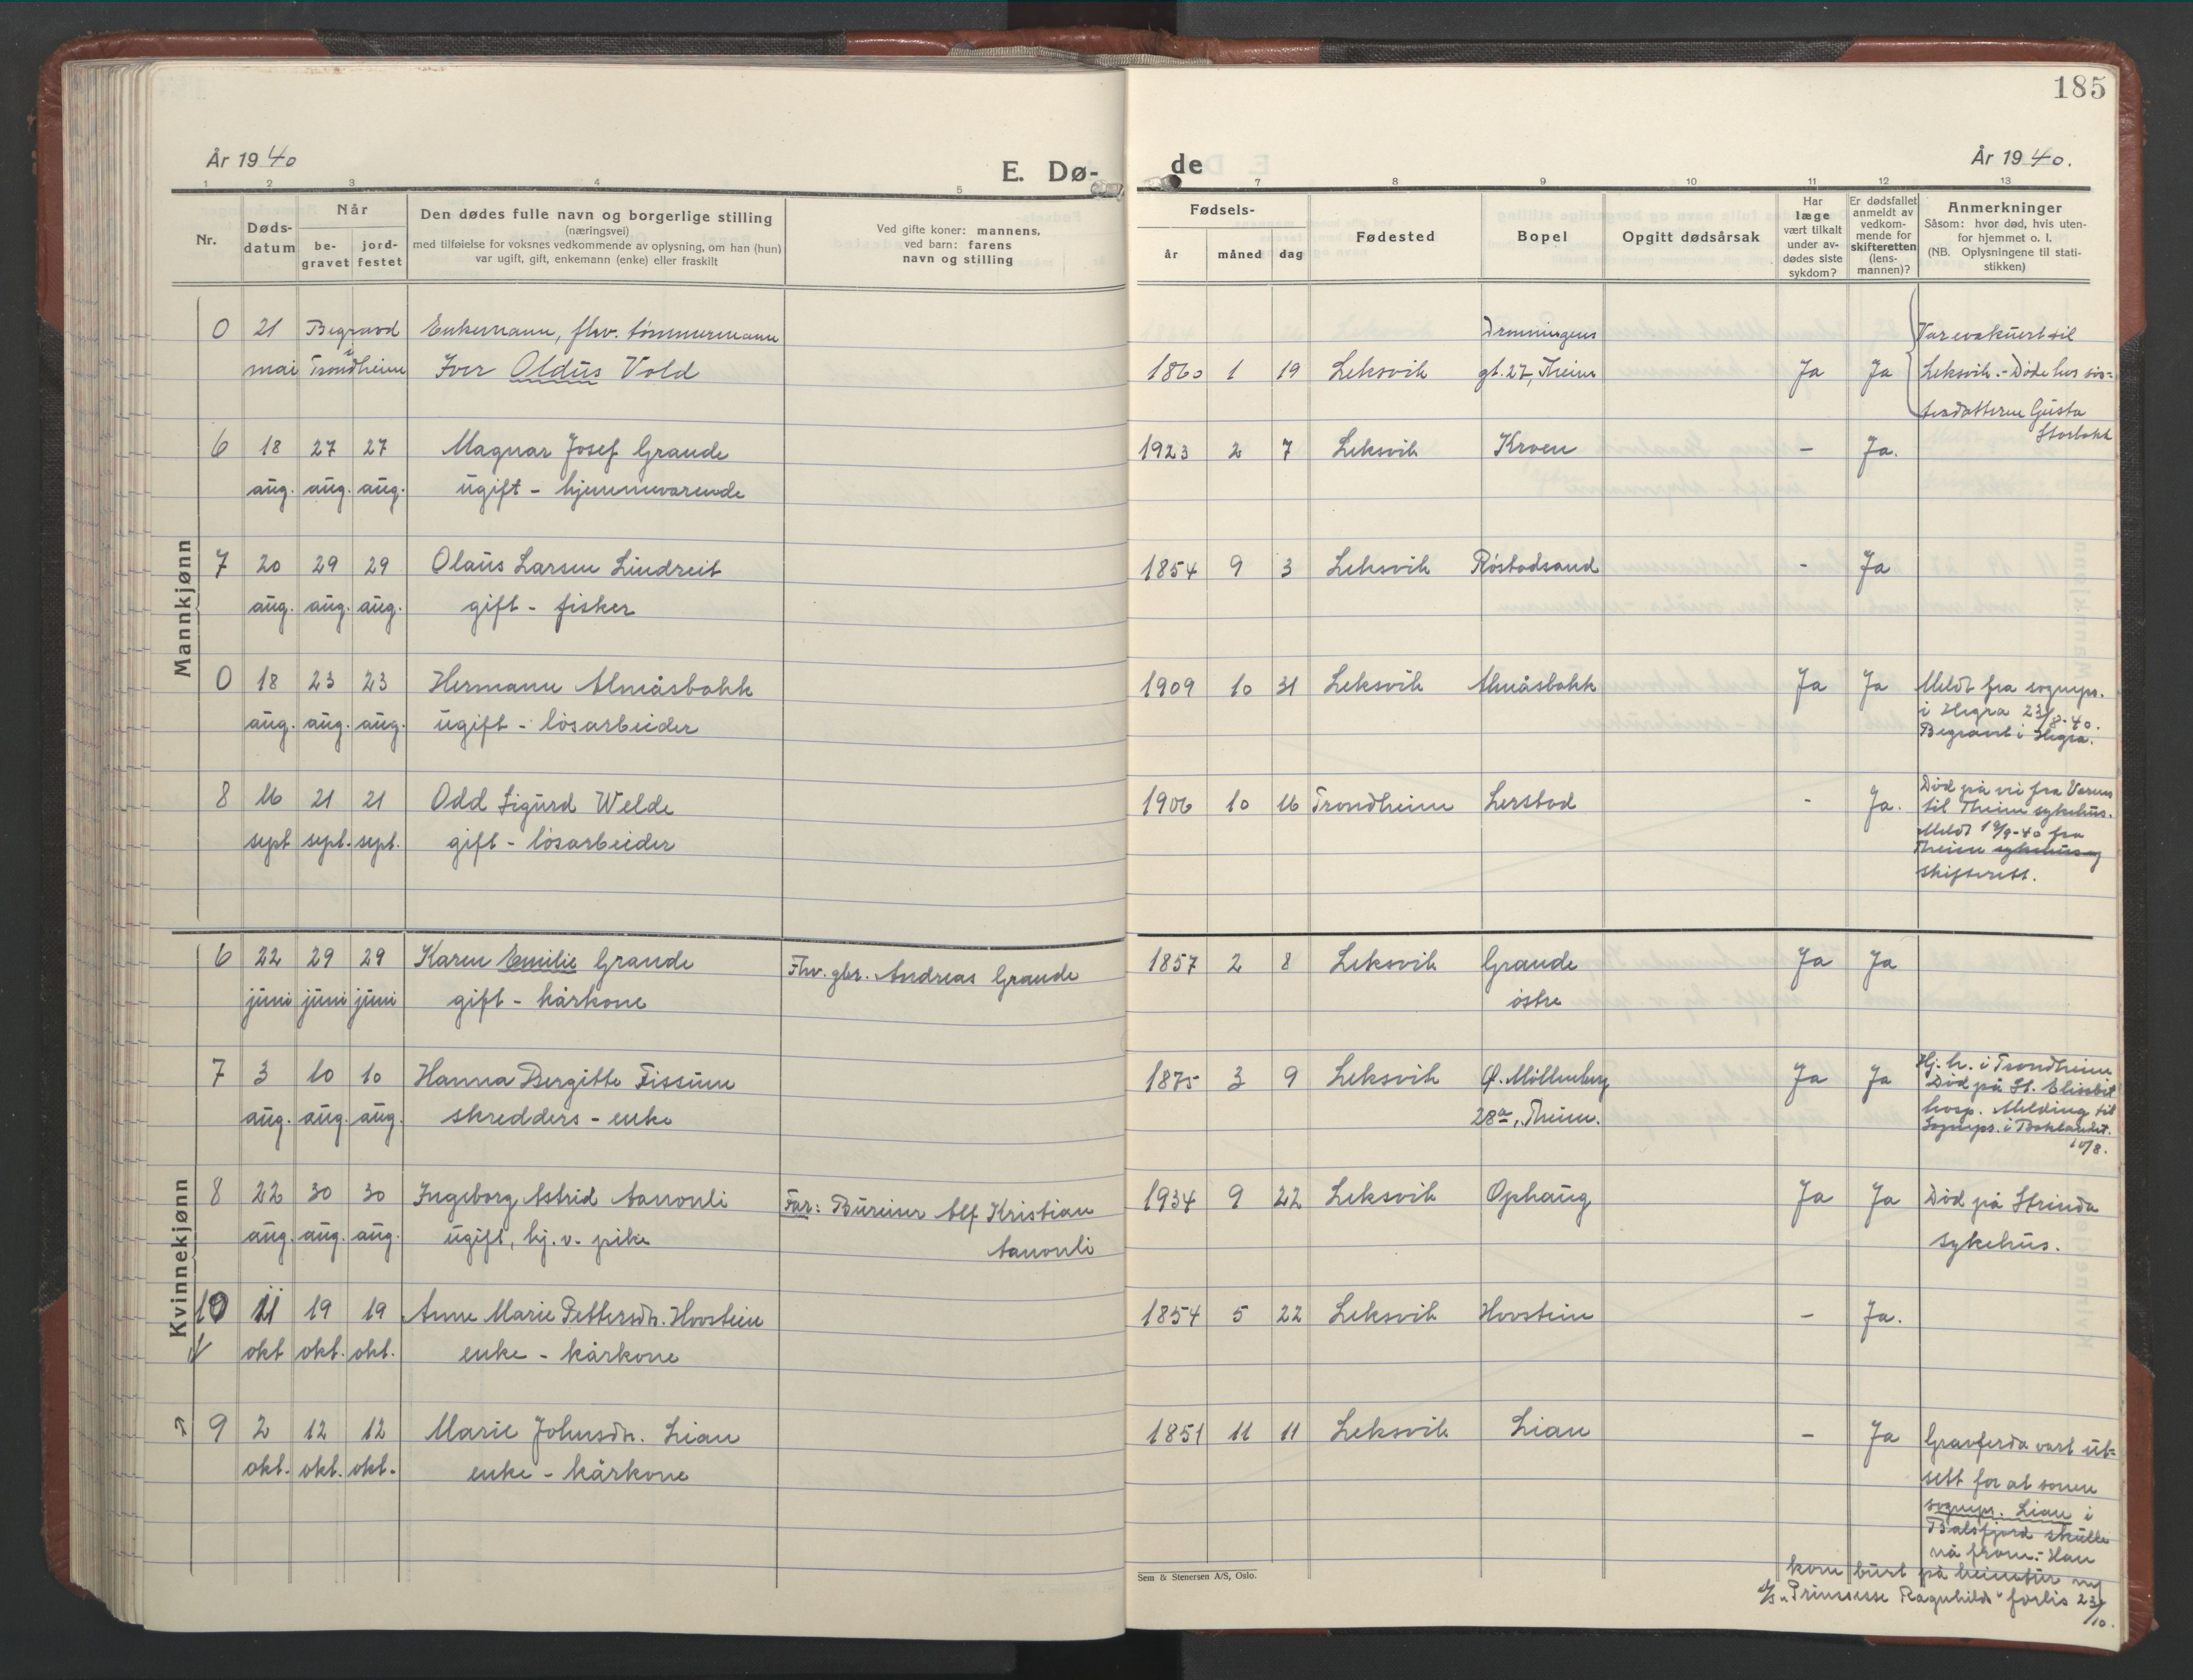 185
År 1940
E. Dø-
de
År 1940.
1 2 3 4 5
7 8 9 10 11 12 13
Nr.
Døds-
datum
Når
be-
gravet
jord-
festet
Den dødes fulle navn og borgerlige stilling
(næringsvei)
med tilføielse for voksnes vedkommende av oplysning, om han (hun)
var ugift, gift, enkemann (enke) eller fraskilt
Ved gifte koner: mannens,
ved barn: farens
navn og stilling
Fødsels-
år måned dag
Fødested
Bopel
Opgitt dødsårsak
Har
læge
vært tilkalt
under av-
dødes siste
sykdom?
Er dødsfallet
anmeldt av
vedkom-
mende for
skifteretten
(lens-
mannen)?
Anmerkninger
Såsom: hvor død, hvis uten-
for hjemmet o. l.
(NB. Oplysningene til stati-
stikken)
Mannkjønn
0 21 Begravd Enkemann, fhv. tømmermann Dronningens Var evakuert til
mai i Trondheim Iver Oldus Vold 1860 1 19 Leksvik gt. 27, Theim Ja Ja Leksvik. - Døde hos søs-
terdatteren Gusta
Storbakk
6 18 27 27 Magnar Josef Grande 1923 2 7 Leksvik Kroen - Ja.
aug. aug. aug. ugift - hjemmevarende
7 20 29 29 Olaus Larsen Lindreit 1854 9 3 Leksvik Røstadsand - Ja
aug. aug. aug. gift - fisker
0 18 23 23 Hermann Almåsbakk 1909 10 31 Leksvik Almåsbakk Ja Ja Meldt fra sognepr.
aug. aug. aug. ugift - løsarbeider i Hegra 23/8-40.
Begravet i Hegra.
8 16 21 21 Odd Sigurd Welde 1906 10 16 Trondheim Lerstad - Ja. Død på vei fra Vanvik
sept sept. sept. gift - løsarbeider til Theim sykehus.
Meldt 19/9-40 fra
Theim sykehus og
skifterett.
Kvinnekjønn
6 22 29 29 Karen Emilie Grande Fhv. gbr. Andreas Grande 1857 2 8 Leksvik Grande Ja Ja
juni juni juni gift - kårkone østre
7 3 10 10 Hanna Bergitte Fissum 1875 3 9 Leksvik Ø. Møllenberg Ja Ja Hj. h. i Trondheim
aug. aug. aug. skredders - enke 28a, Theim. Død på St. Elisabet
hosp. Melding til
Sognepr. i Baklandet.
10/8.
8 22 30 30 Ingeborg Astrid Aanonli Far: Bureiser Alf Kristian 1934 9 22 Leksvik Ophaug Ja Ja Død på Strinda
aug. aug. aug. ugift, hj. v. pike Aanonli sykehus.
10 11 19 19 Anne Marie Pettersdtr. Hovstein 1854 5 22 Leksvik Hovstein - Ja.
okt okt. okt. enke - kårkone
9 2 12 12 Marie Johnsdtr. Lian 1851 11 11 Leksvik Lian - Ja Gravferda vart ut-
okt. okt. okt. enke - kårkone sett for at sonen
sognepr. Lian i
Balsfjord skulle
nå fram. - Han
kom burt på heimtur m/
d/s „Prinsesse Ragnhild" forlis 23/10.
Sem & Stenersen A/S, Oslo.